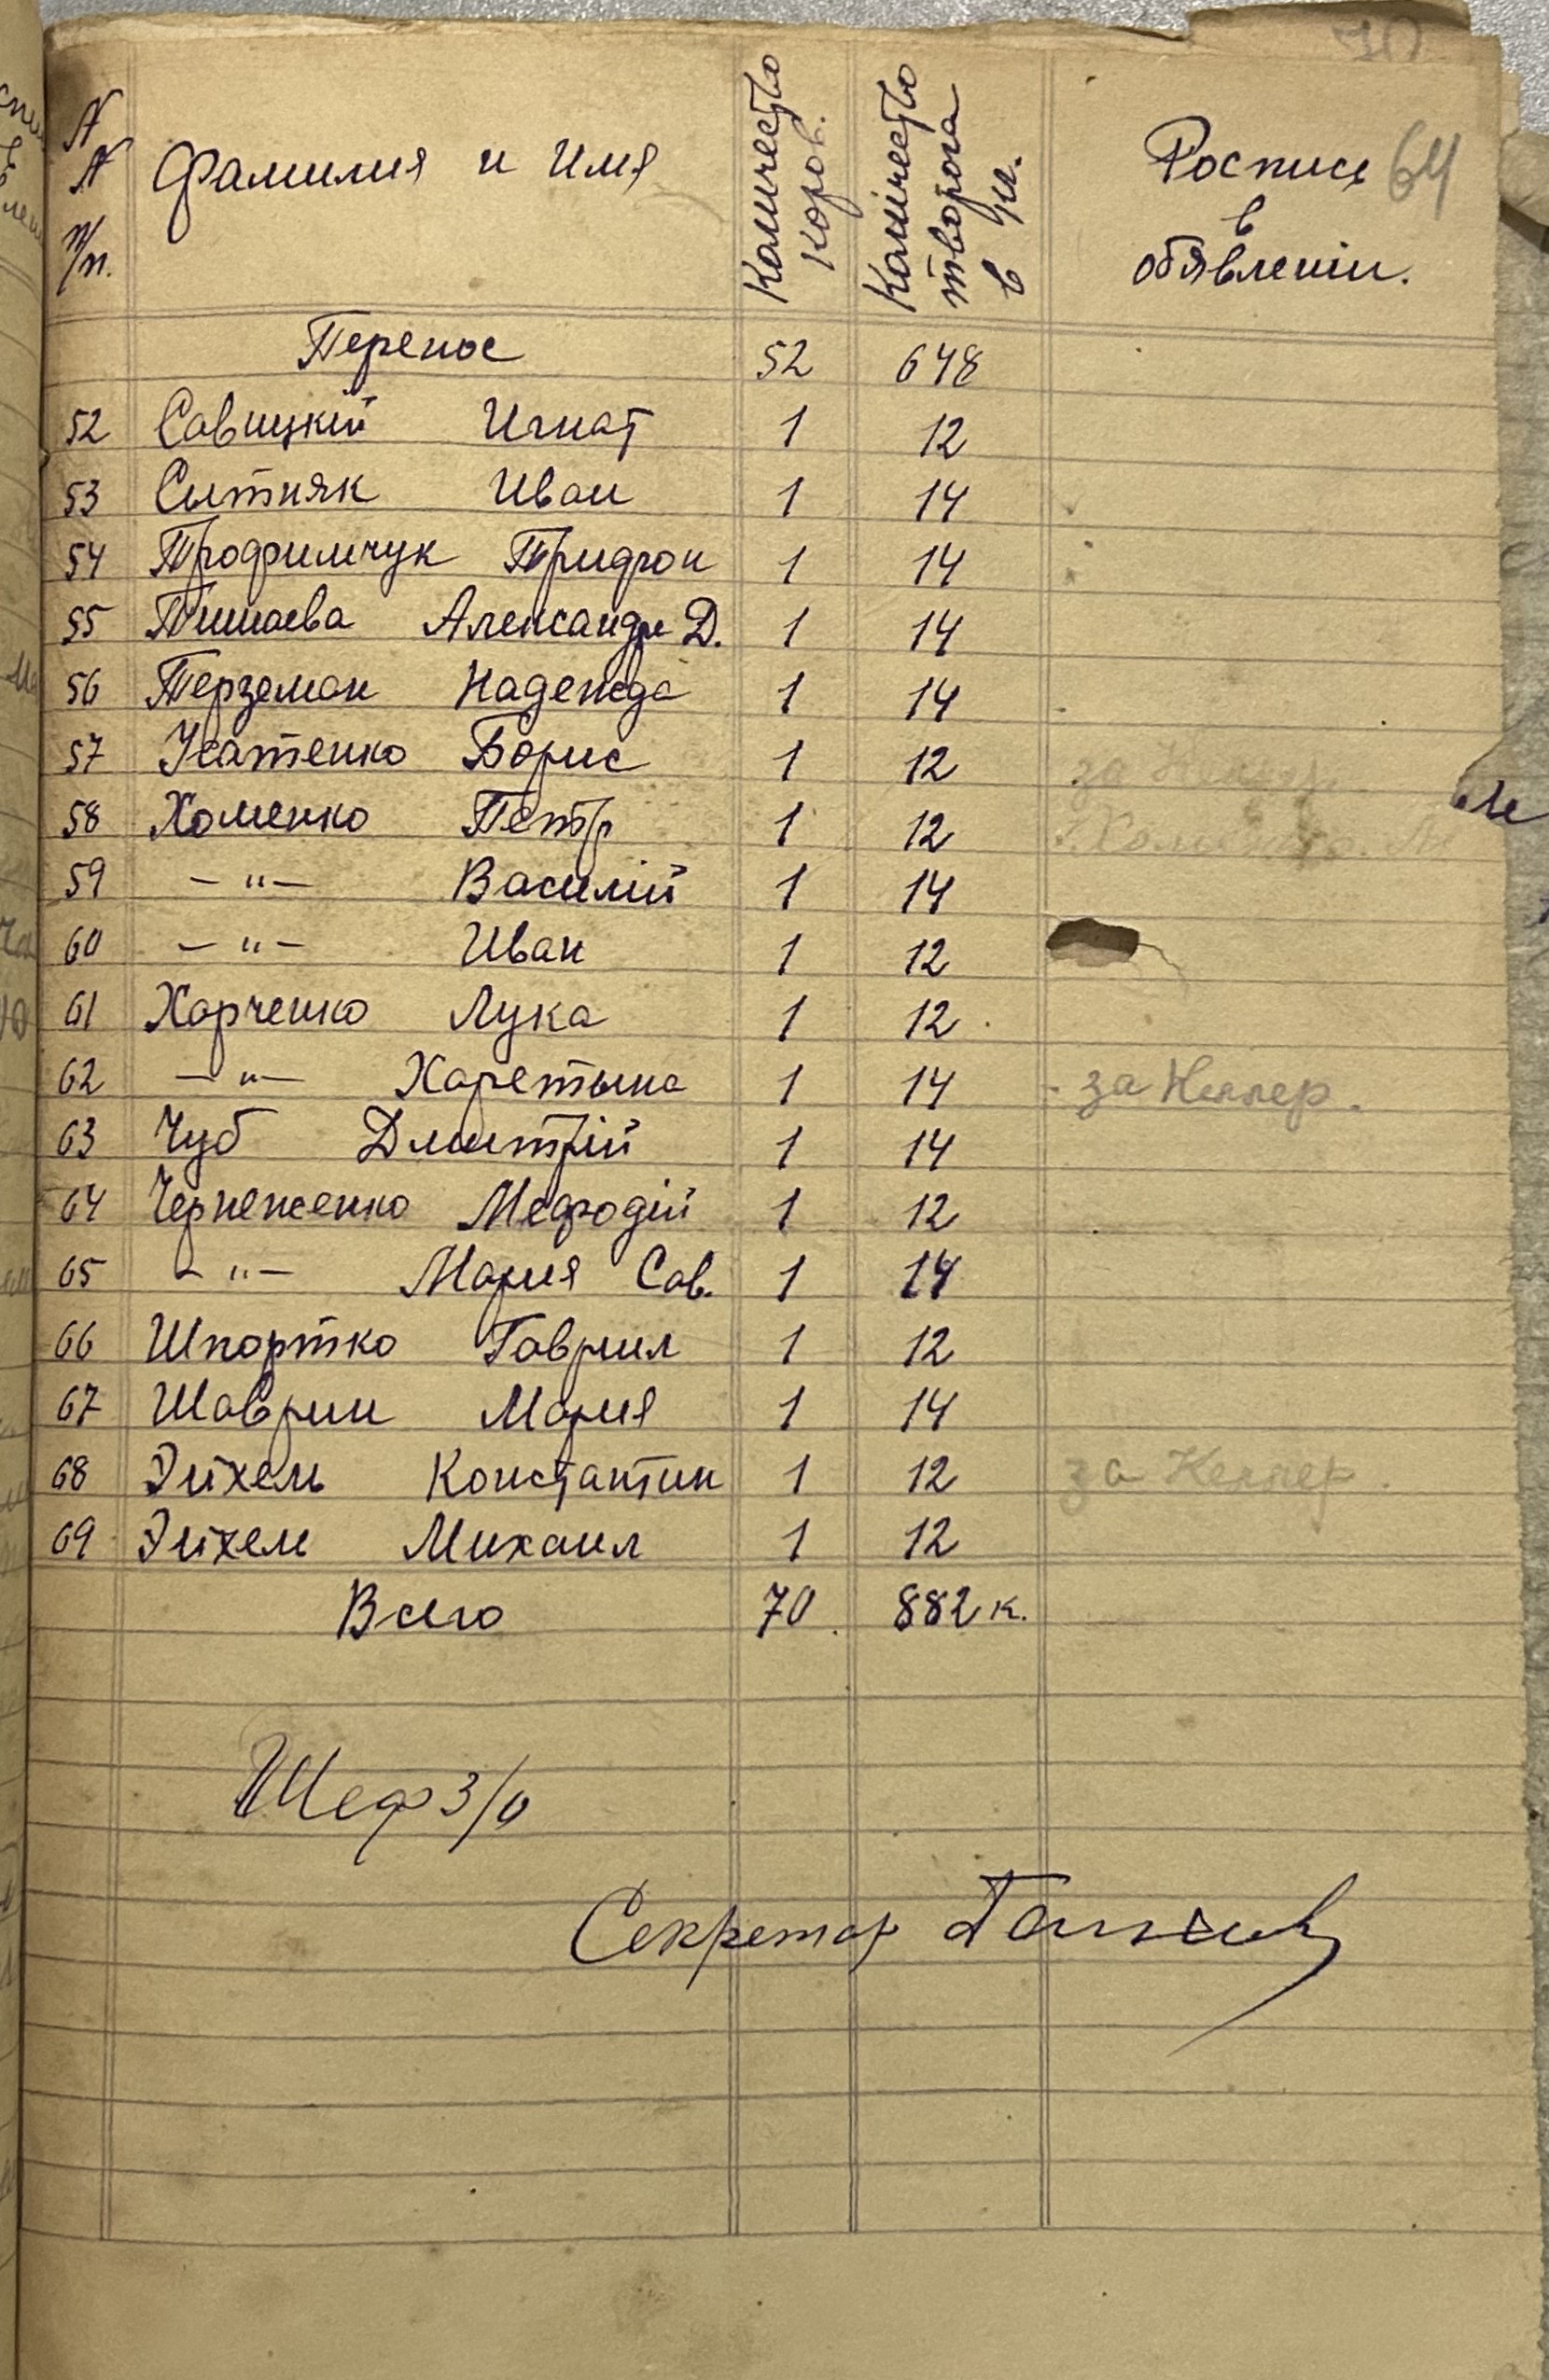 70
64
N N п/п. Фамилия и Имя Количество коров. Количество творога в кг. Роспись в обявлении.
Перенос 52 648
52 Савицкій Игнат 1 12
53 Сытняк Иван 1 14
54 Трофимчук Трифон 1 14
55 Александр Д. 1 14
56 Терземан Надежда 1 14
57 Усатенко Борис 1 12 за
58 Хоменко Петр 1 12 Хоменко
59 – " – Василій 1 14
60 – " – Иван 1 12
61 Харченко Лука 1 12
62 – " – Харетына 1 14 за Келлер.
63 Чуб Дмитрій 1 14
64 Черненженко Мефодій 1 12
65 – " – Мария Сав. 1 14
66 Шпортко Гаврил 1 12
67 Шаврин Мария 1 14
68 Эйхель Константин 1 12 за Келлер.
69 Эйхель Михаил 1 12
Всего 70 882 к.
Шеф з/о
Секретар